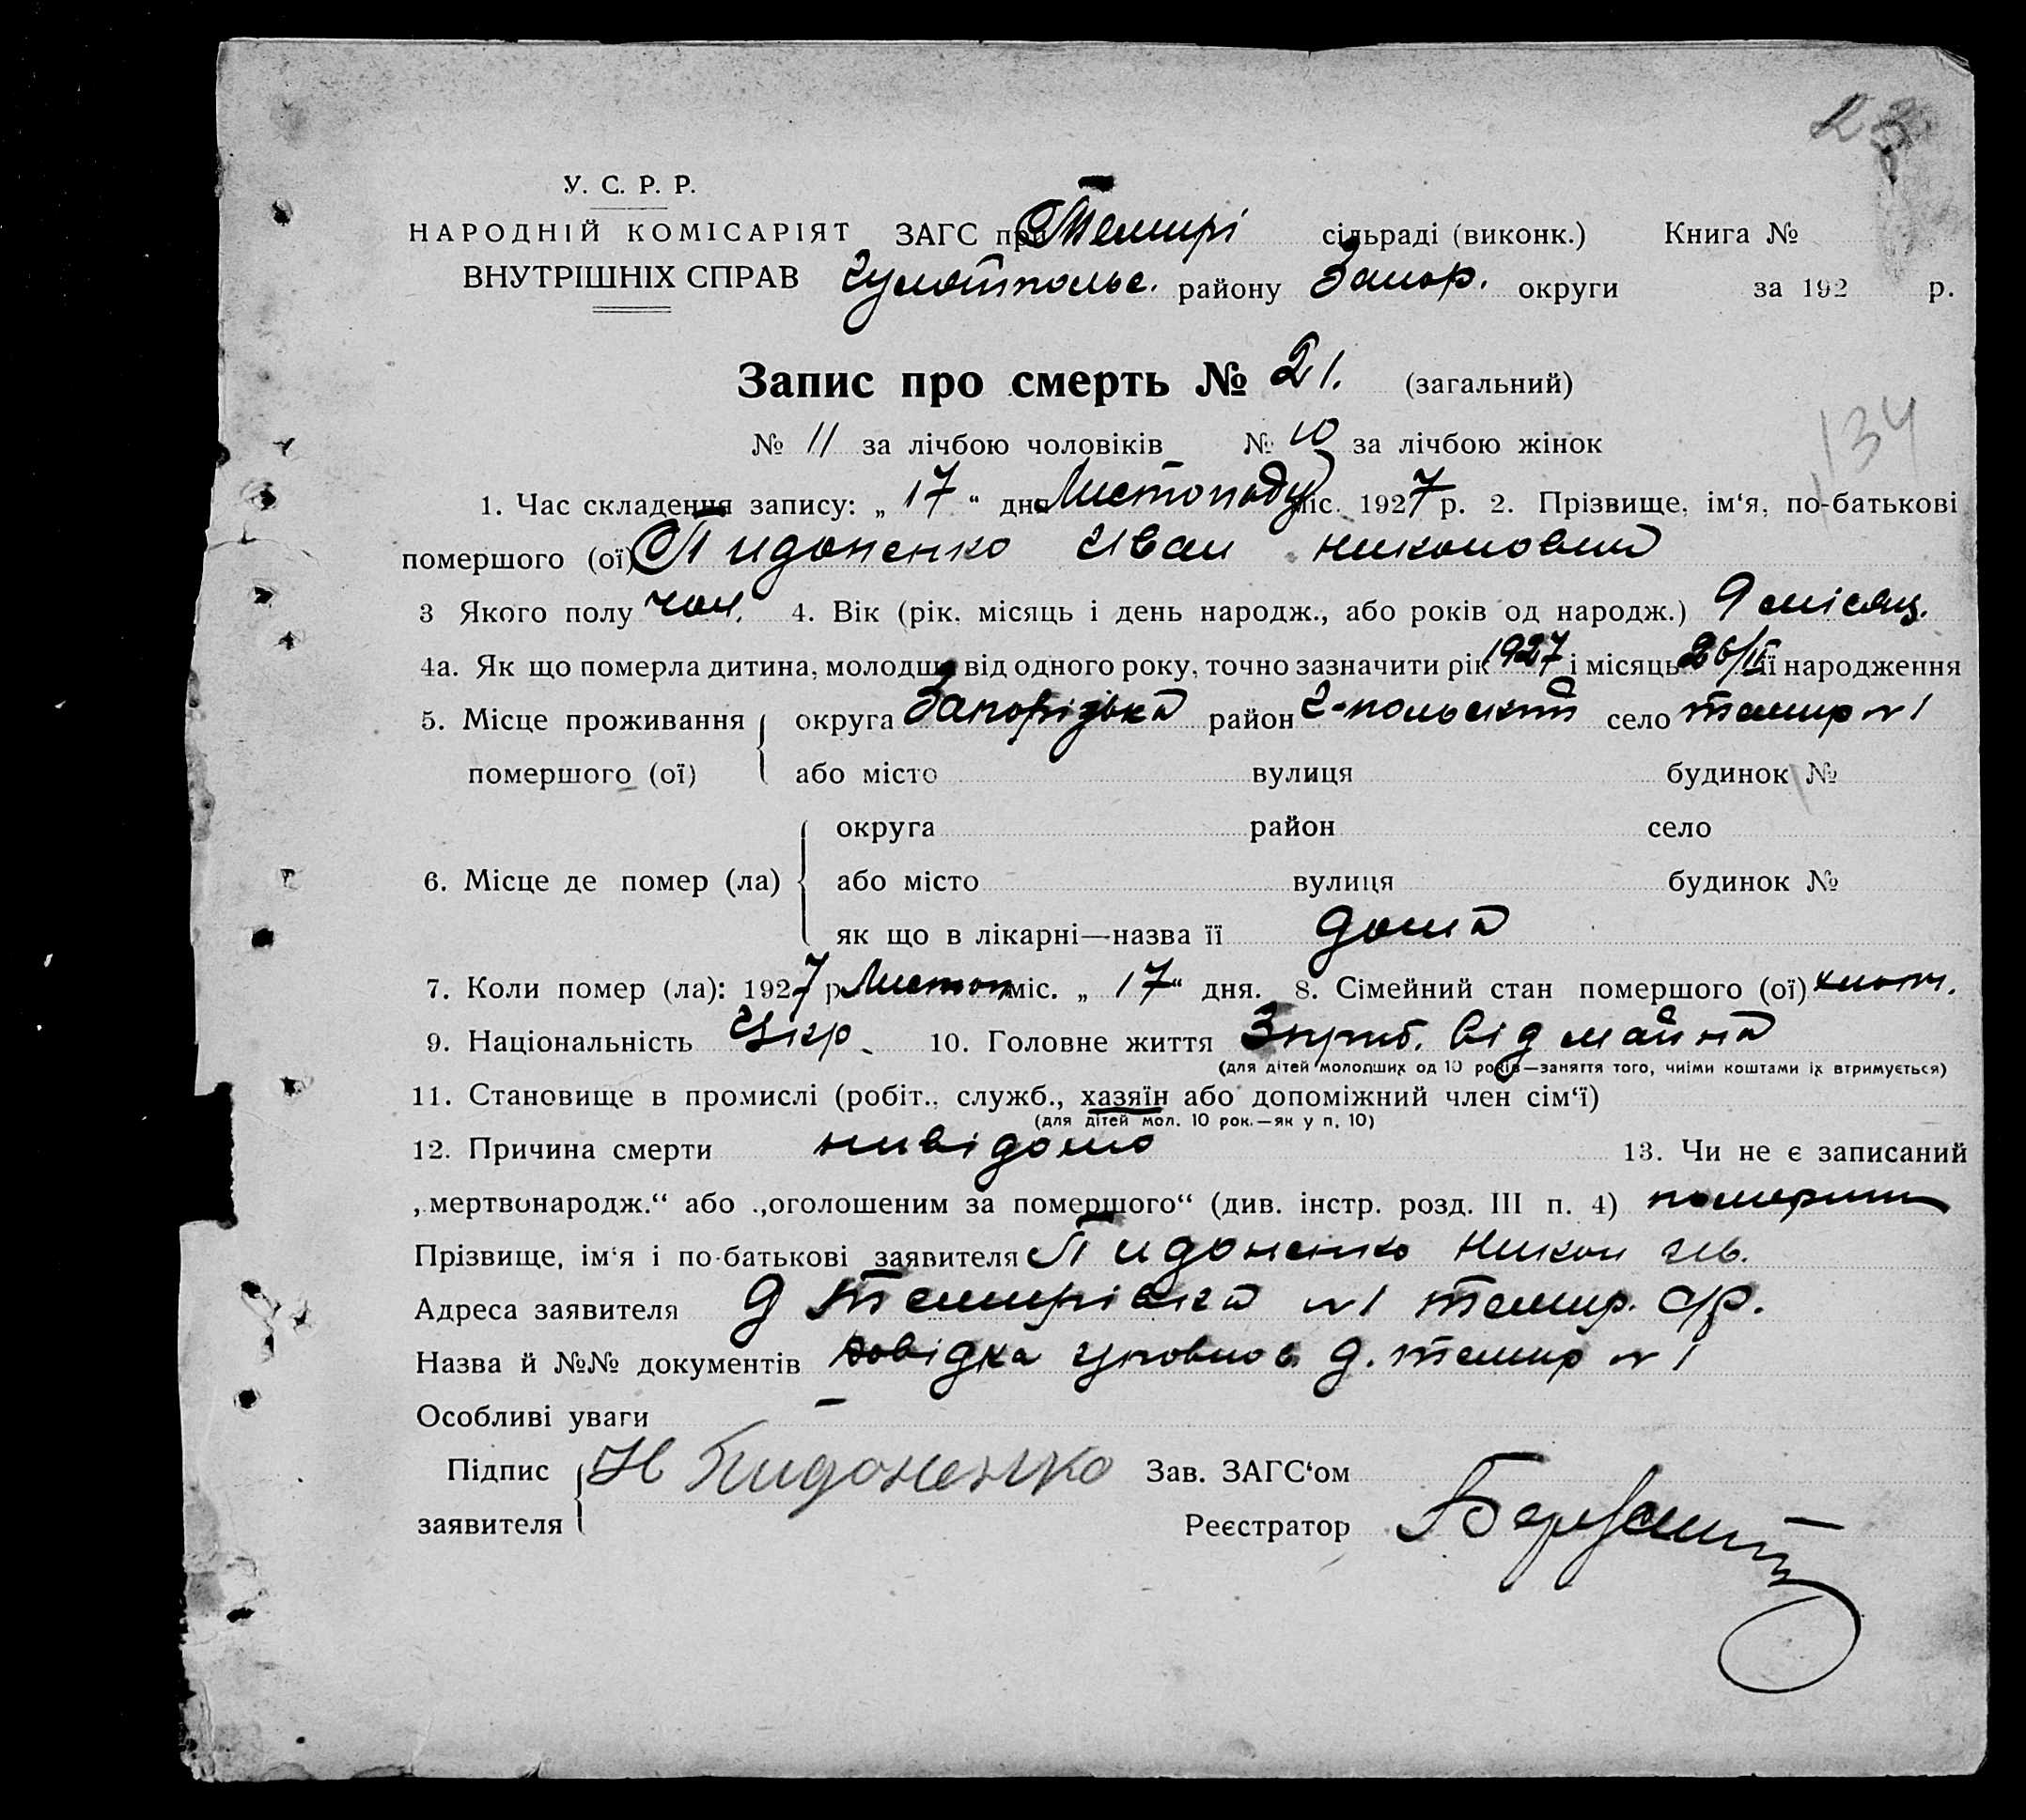 23
У. С. Р. Р.
НАРОДНІЙ КОМІСАРІЯТ ЗАГС при Темирі сільраді (виконк.) Книга №
ВНУТРІШНІХ СПРАВ Гуляйпольс. району Запор. округи за 192 р.
Запис про смерть № 21. (загальний)
№ 11 за лічбою чоловіків № 10 за лічбою жінок
134
1. Час складення запису: „ 17 “ дня Листопаду міс. 1927 р. 2. Прізвище, ім‘я, по-батькові
помершого (ої) Пидоненко Иван Никонович
3 Якого полу чол. 4. Вік (рік, місяць і день народж., або років од народж.) 9 місяц.
4а. Як що померла дитина, молодша від одного року, точно зазначити рік 1927 і місяць 26/II її народження
5. Місце проживання округа Запорізька район Г-польский село темир №1
помершого (ої) або місто вулиця будинок №
округа район село
6. Місце де помер (ла) або місто вулиця будинок №
як що в лікарні—назва її дома
7. Коли помер (ла): 1927 р Листоп міс. „ 17 “ дня. 8. Сімейний стан помершого (ої)
9. Національність Укр. 10. Головне життя від майна
(для дітей молодших од 10 років—заняття того, чиїми коштами їх втримується)
11. Становище в промислі (робіт., служб., хазяїн або допоміжний член сім‘ї)
(для дітей мол. 10 рок.—як у п. 10)
12. Причина смерти нивідомо 13. Чи не є записаний
„мертвонародж.“ або „оголошеним за помершого“ (див. інстр. розд. III п. 4) померший
Прізвище, ім‘я і по-батькові заявителя Пидоненко Никон Ив.
Адреса заявителя д Темирівка №1 темир. с/р.
Назва й №№ документів довідка уповнов. д. темир №1
Особливі уваги —
Підпис Н Пидоненко Зав. ЗАГС‘ом
заявителя Реєстратор